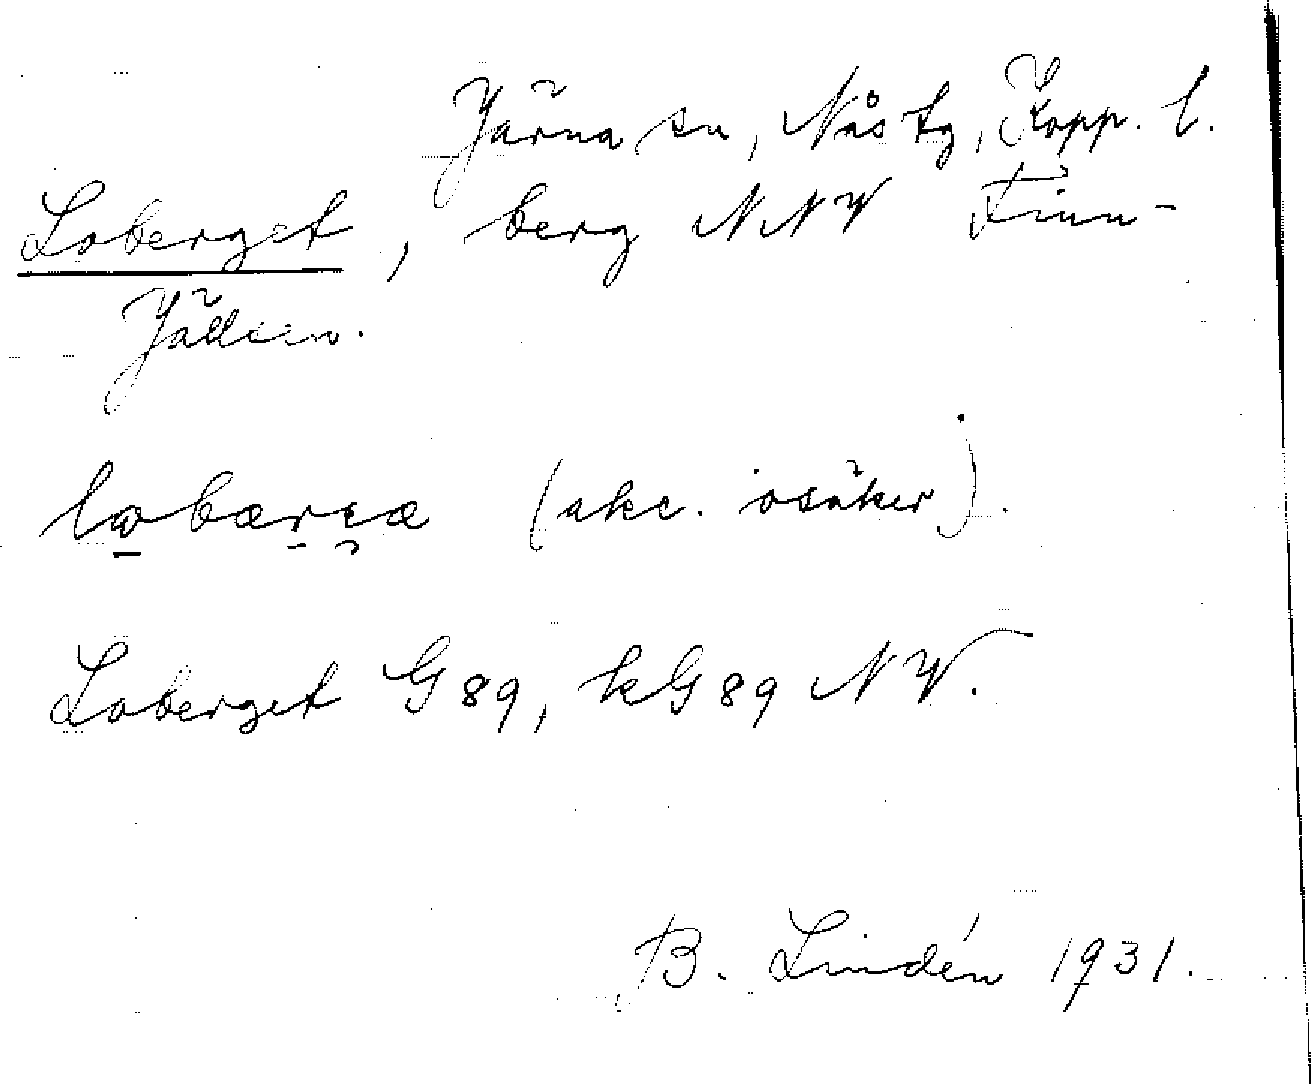 Järna sn, Nås tg, Kopp. l.
Loberget, berg NNV Finn-
Jällsen.
(akc. osäker).
Loberget G 89, kG 89 NV.
B. Lindén 1931.